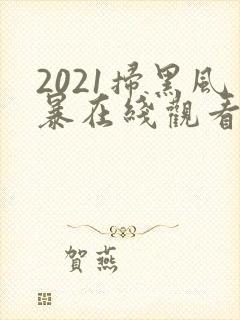 2021掃黑風
暴在綫觀看
賀燕